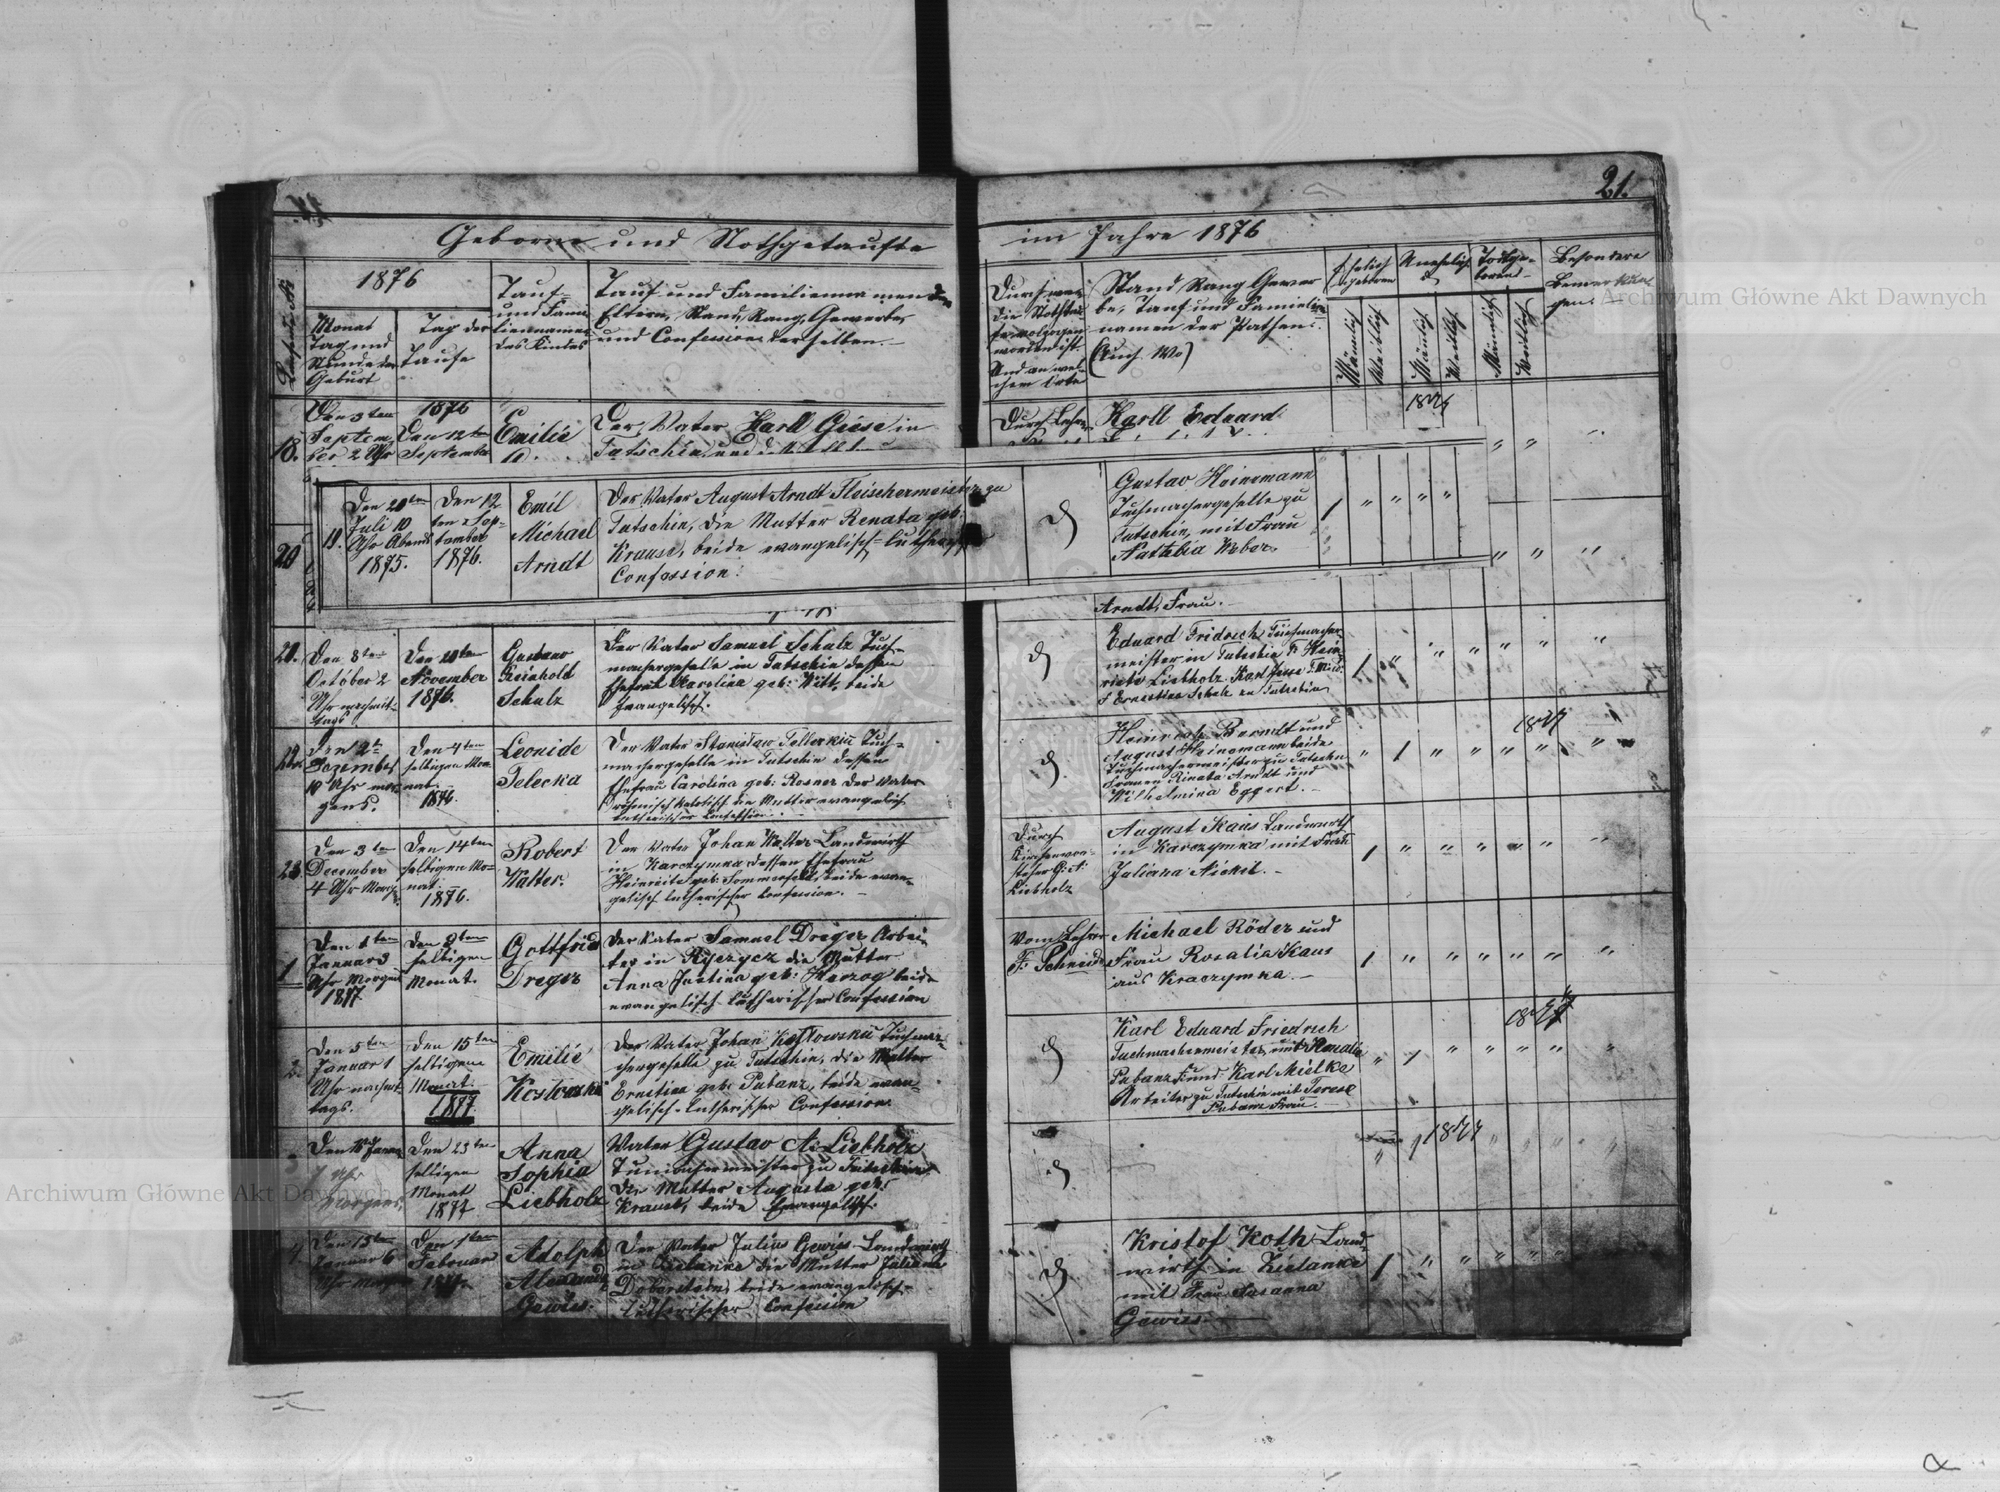 21.
Geborne und Nothgetaufte
im Jahre 1876
1876
Monat
Tag und
Stunde der
Geburt
Tag der
Taufe
Tauf-
und Fami-
liennamen
des Kindes
Tauf und Familiennamen der
Eltern, Stand, Rang, Gewerbe,
und Confession derselben.
Durch wen
die Nothtau-
worden ist.
Und an wel-
chem Orte
Stand Rang Gewer
be, Tauf und Familien
namen der Pathen.
(Auch Wo)
Ehelich
geboren
Unehelich
Todtge-
boren
Männlich
Weiblich
Männlich
Weiblich
Männlich
Weiblich
Besondere
Bemerkun-
gen.
18.
Den 9ten
Septem
ber 2 Uhr
1876
Den 12ten
September
Emilie
Der Vater Karll Giese in
Tutschin, und
Durch Lehrer
Karll Eduard
19.
Den 20ten
Juli 10
Uhr Abends
1875.
Den 12
ten Sep-
tember
1876.
Emil
Michael
Arndt
Der Vater August Arndt Fleischermeister zu
Tutschin, die Mutter Renata geb:
Krause, beide evangelisch-lutherisch
Confession.
Gustav Heinemann
Tuchmachergeselle zu
Tutschin, mit Frau
Nathlia Weber
20
Arndt, Frau.
21.
Den 8ten
October 2
Uhr nachmit-
tags
Den 10ten
November
1876.
Gustav
Reinhold
Schulz
Der Vater Samuel Schulz Tuch-
machergeselle in Tutschin dessen
Ehefrau Karolina geb: Witt, beide
Evangelisch.
Eduard Fridrich Tuchmacher
meister in Tutschin F. Hein-
riete Liebholz. Karl
F Ernestine Schulz zu Tutschin
Den 2t
Dezember
10 Uhr mor-
gens.
Den 4ten
selbigen Mo-
nat.
1876.
Leonide
Telecka
Der Vater Stanislaw Tellerkiu Tuch-
machergeselle in Tutschin dessen
Ehefrau Carolina geb: Rosner der Vater
römisch katolisch die Mutter evangelisch
lutherischer Confession.
Heinrich Berndt und
August Heinemann beide
Tuchmachermeister zu Tutschin
Frauen Rinata Arndt und
Wilhelmina Eggert.
23.
Den 3ten
December
4 Uhr Morg.
Den 14ten
selbigen Mo-
nat.
1876.
Robert
Walter.
Der Vater Johan Walter Landwirth
in Karczymka dessen Ehefrau
Heinreite geb: Sommerfeld beide evan-
gelisch lutherischer Confession.
Durch
Kirchenvor-
steher G: A:
Liebholz
August Kaus Landwirth
in Karczymka mit Frau
Juliana Nickel.
1
Den 1ten
Januar 3
Uhr Morgens
1877
Den 2ten
selbigen
Monat.
Gottfried
Dreger
Der Vater Samuel Dreger Arbei-
ter in Ryczycz die Mutter
Anna Justina geb: Herzog beide
evangelisch-lutherischer Confession
Vom Lehrer
F: Schneider
Michael Röder und
Frau Rosalia Kaus
aus Kraczymka.
2.
Den 5ten
Januar 1
Uhr nachmit-
tags.
Den 15ten
selbigen
Monat.
1877.
Emilie
Koslowski
Der Vater Johan Koslowski Tuchma-
chergeselle zu Tutschin, die Mutter
Ernstine geb: Pubanz, beide evan-
gelisch-lutherischer Confession.
Karl Eduard Friedrich
Tuchmachermeister mit Rosalie
Pubanz F: und Karl Mielke
Arbeiter zu Tutschin mit Terese
Pubanz Frau.
3
Uhr
Morgens
Den 23ten
selbigen
Monat
1877
Anna
Sophia
Liebholz
Vater Gustav A: Liebholz
Tuchmachermeister zu Tutschin
Die Mutter Augusta geb:
Krause, beide Evangelisch.
4.
Den 15ten
Januar 6
Uhr Morgens
Den 1ten
Februar
1877.
Adolph
Alexander
Gewiss.
Der Vater Julius Gewiss Landwirth
in Zielanke die Mutter Juliane
Doberstein, beide evangelisch-
lutherischer Confession
Kristof Koth Land
wirth in Zielanke
mit Frau Susanna
Gewiss.
Archiwum Główne Akt Dawnych
Archiwum Główne Akt Dawnych